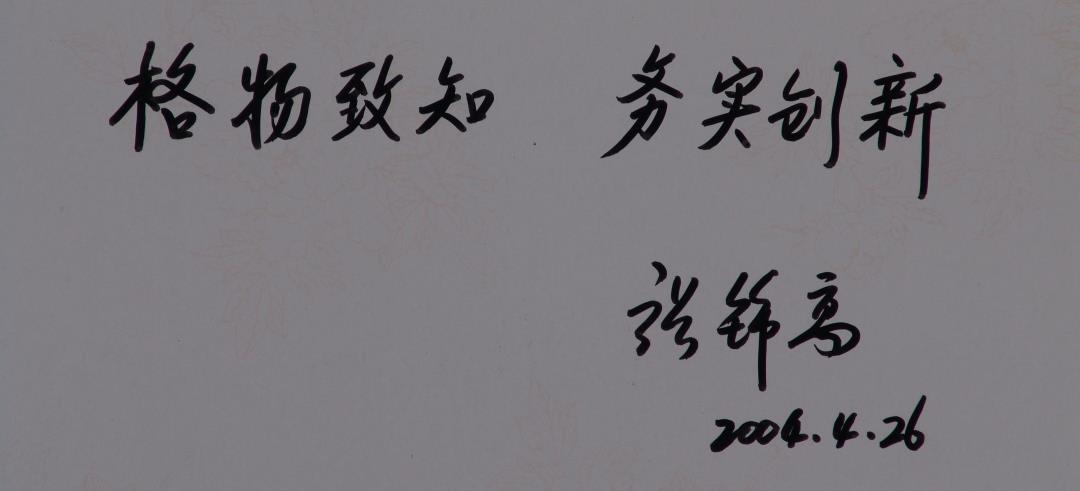 格物致知 务实创新
张锦高
2004.4.26